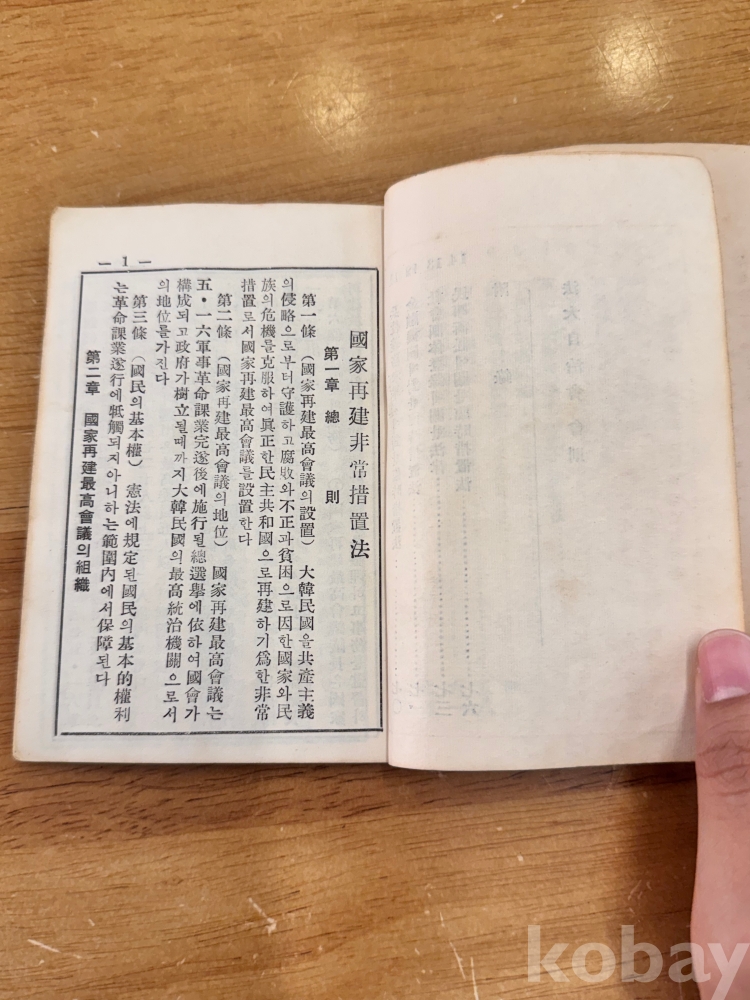 — 1 —
國家再建非常措置法
第一章 總 則
第一條 (國家再建最高會議의設置) 大韓民國을共產主義
의侵略으로부터守護하고腐敗와不正과貧困으로因한國家와民
族의危機를克服하여眞正한民主共和國으로再建하기爲한非常
措置로서國家再建最高會議를設置한다
第二條 (國家再建最高會議의地位) 國家再建最高會議는
五·一六軍事革命課業完遂後에施行될總選擧에依하여國會가
構成되고政府가樹立될때까지大韓民國의最高統治機關으로서
의地位를가진다
第三條 (國民의基本權) 憲法에規定된國民의基本的權利
는革命課業遂行에牴觸되지아니하는範圍內에서保障된다
第二章 國家再建最高會議의組織
kobay